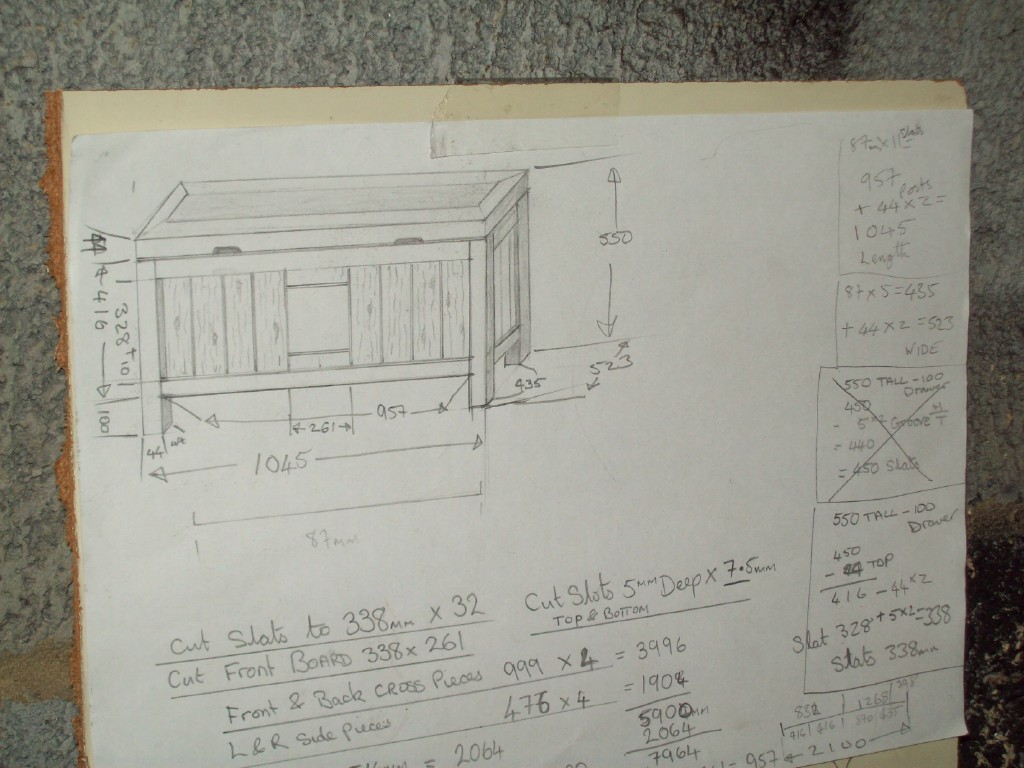 87mm x 11 Slats
957
+ 44 x 2 = posts
1045
Length
87 x 5 = 435
+ 44 x 2 = 523
WIDE
550 TALL - 100
Drawer
450
- 5 x2 Groove
= 440
= 450 Slats
550 TALL - 100
Drawer
450
TOP
416 - 44 x 2
Slat 328 + 5 x 2 = 338
Slats 338mm
832 1268
416 416
2100
550
416
328 + 10
100
44
44
957
261
1045
435
523
87mm
Cut Slats to 338mm x 32
Cut Front BOARD 338 x 261
Cut Slots 5mm Deep x 7.5mm
TOP & BOTTOM
Front & Back CROSS Pieces 999 x 4 = 3996
L & R Side Pieces 476 x 4 = 1904
5900mm
2064
7964
= 2064
957